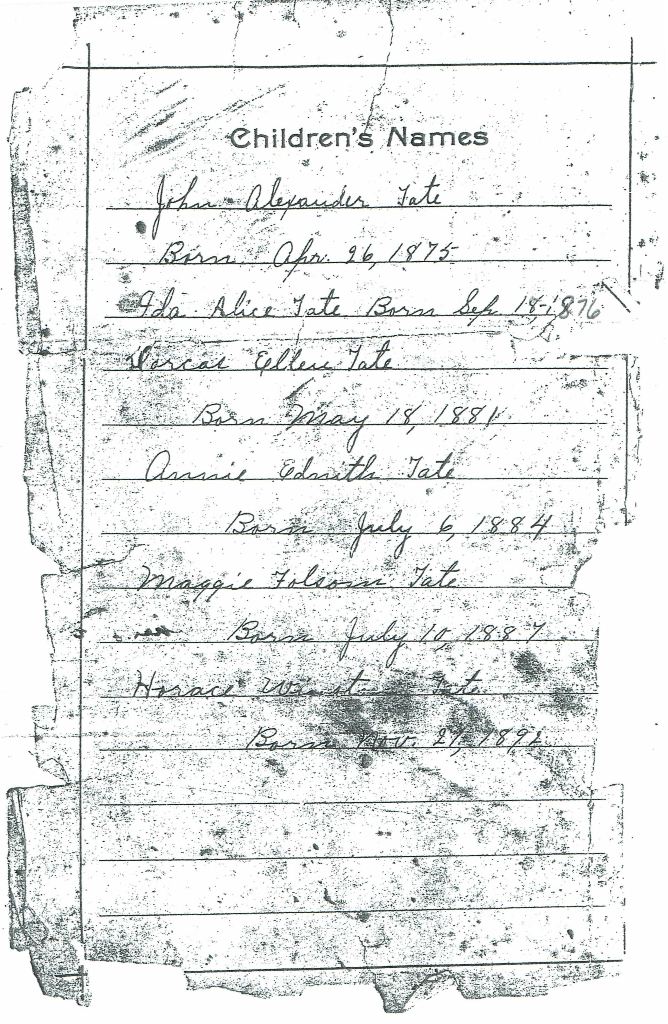 Children's Names
John Alexander Tate
Born Apr. 26, 1875
Ida Alice Tate Born Sep. 18-1876
Dorcas Ellen Tate
Born May 18, 1881
Annie Ednith Tate
Born July 6, 1884
Maggie Folsom Tate
Born July 10, 1887
Horace Winston Tate
Born Nov. 27, 1892